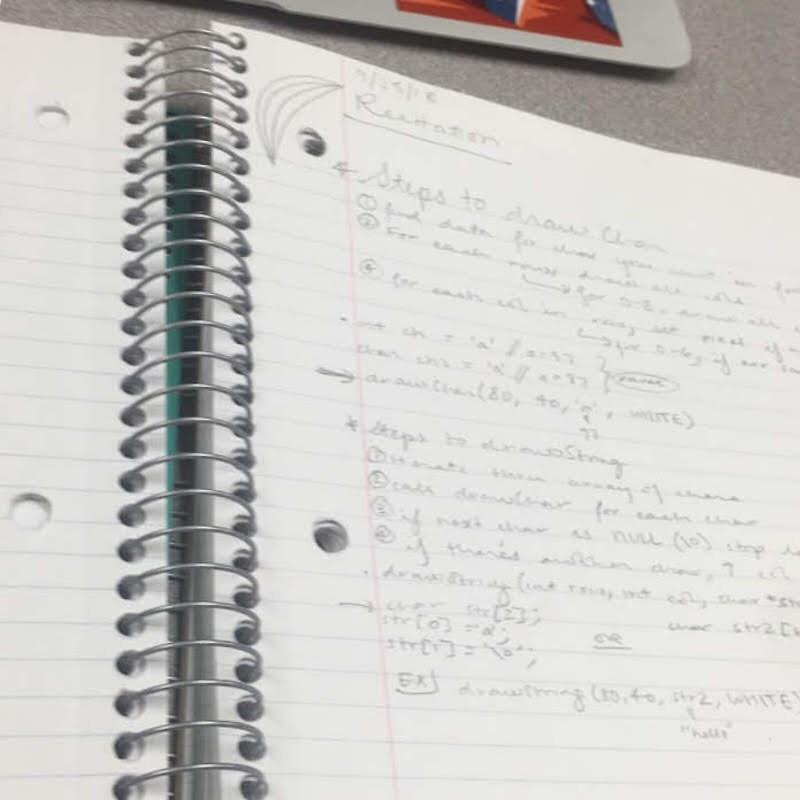 Recitation
* Steps to draw Char
① find data for char you want in
② For each row, draw all cols
→ for 0-8, draw all
④ for each col in row, set pixel if
→ for 0-6, if
· int ch = 'a' // a=97
char ch2 = 'a' // a=97
→ drawChar(80, 40, 'a', WHITE)
97
* Steps to drawString
① iterate thru array of chars
② call drawChar for each char
③ if next char is NULL (\0) stop
④ if there's another draw, ↑ col
· drawString(int row, int col, char *str
→ char str[2];
char str2[
str[0] = 'a';
OR
str[1] = '\0';
EX) drawString(80,40, str2, WHITE)
"hello"